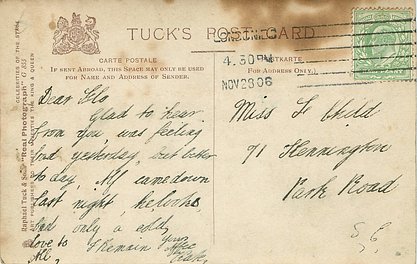 TUCK'S POST CARD
CARTE POSTALE
IF SENT ABROAD, THIS SPACE MAY ONLY BE USED
FOR NAME AND ADDRESS OF SENDER.
POSTKARTE
(FOR ADDRESS ONLY.)
4.30 PM
NOV 28 06
Raphael Tuck & Sons' "Real Photograph"
CELEBRITIES OF THE STAGE
ART PUBLISHERS TO THEIR MAJESTIES THE KING & QUEEN
Dear Glo
Glad to hear
from you was feeling
bad yesterday, but better
to day, Alf came down
last night, he looks
bad only a cold,
love to I remain Yours
All,
Miss F Child
71 Kennington
Park Road
S.E.